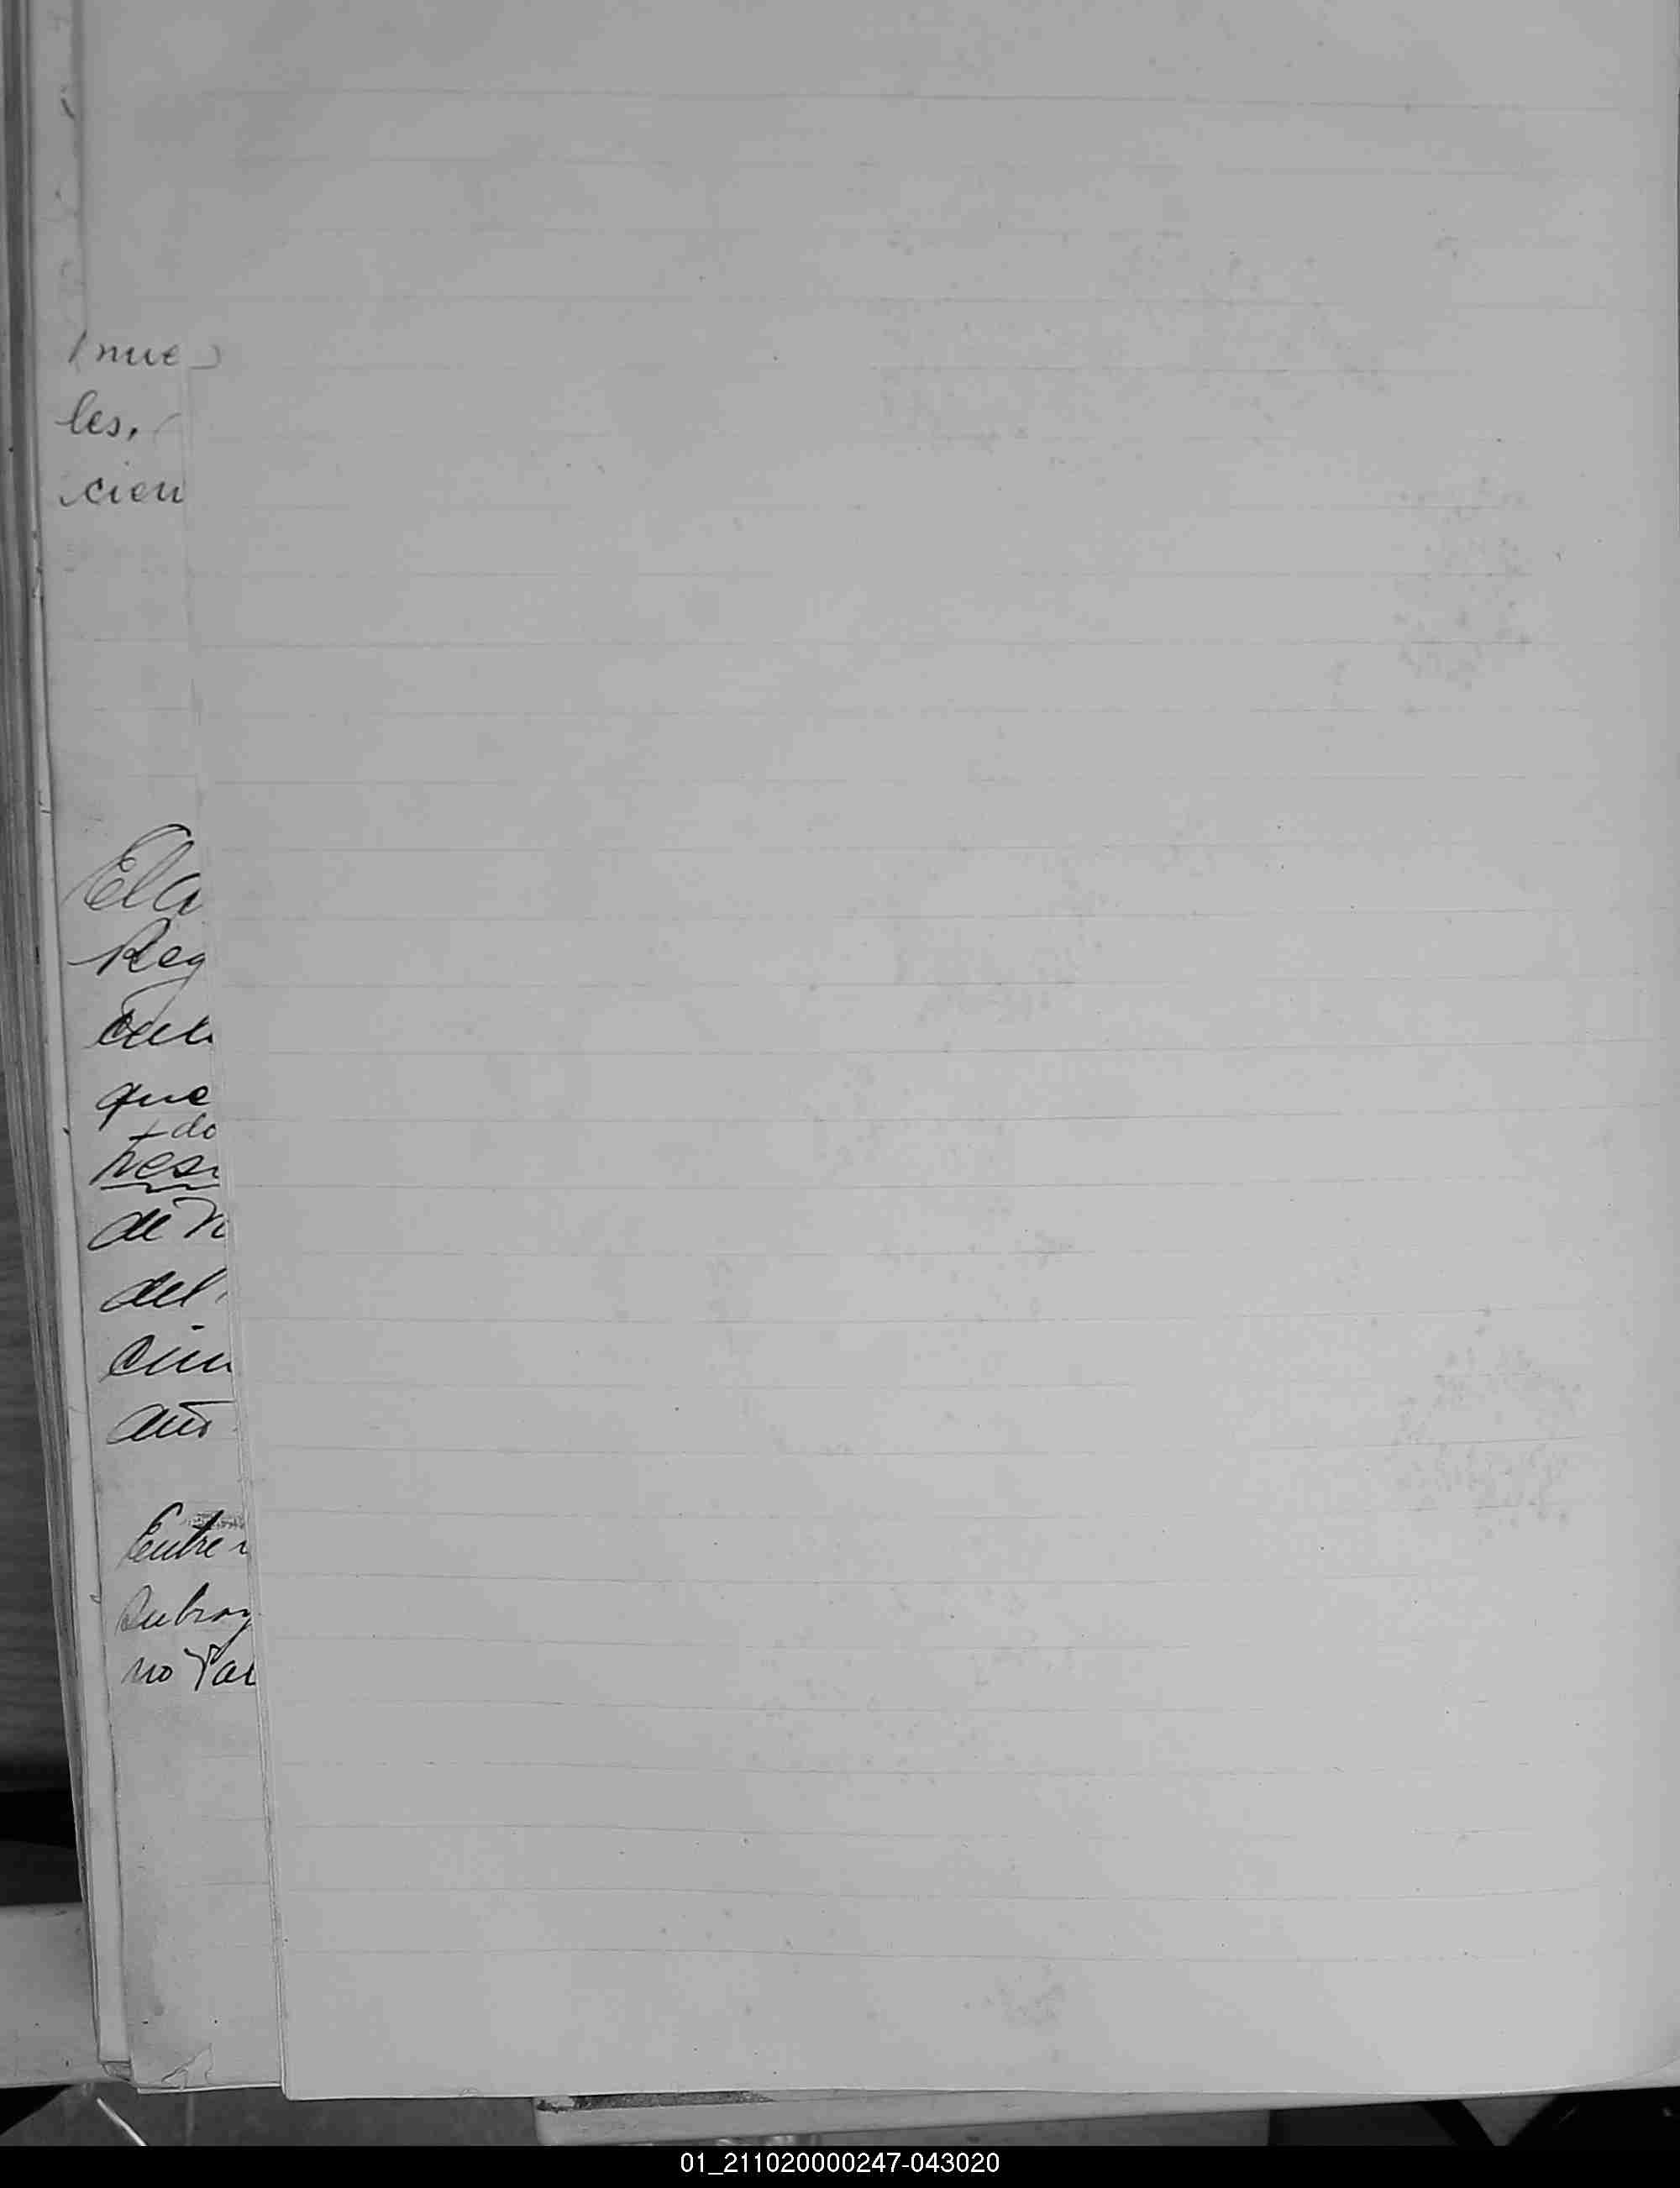 nue
les,
cien
El a
Reg
cul
que
do
tres
de n
del
cin
año
Entre r
Subray
no Val
01_211020000247-043020